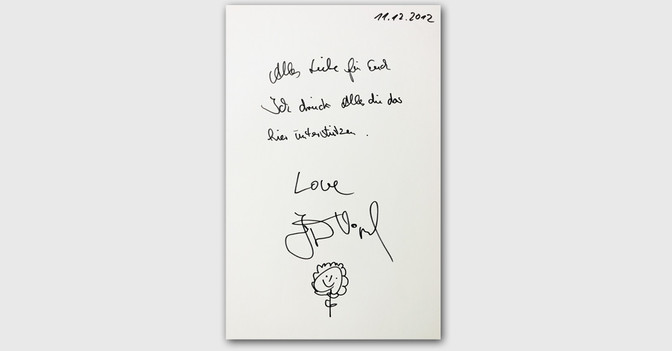 11.12.2012
Alles Liebe für Euch
Ich drück Alle die das
hier unterstützen.
Love